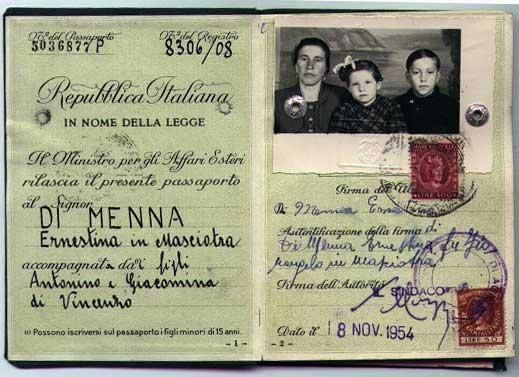 N.º del Passaporto
N.º del Registro
5036877 P
8306/08
Repubblica Italiana
IN NOME DELLA LEGGE
Il Ministro per gli Affari Esteri
rilascia il presente passaporto
al Signor
DI MENNA
Ernestina in Masciotra
accompagnata dai figli
Antonino e Giacomina
di Vincenzo
(1) Possono iscriversi sul passaporto i figli minori di 15 anni.
- 1 -
LIRE 400
Firma del
Di Menna
Autenticazione della firma di
Di Menna
in Masciotra
Firma dell'Autorità
IL SINDACO
Dato il 18 NOV. 1954
LIRE 50
- 2 -